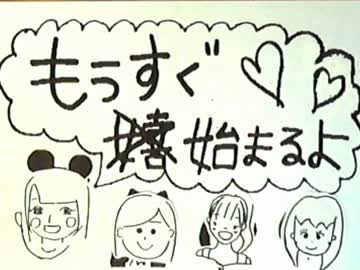 もうすぐ
嬉始まるよ